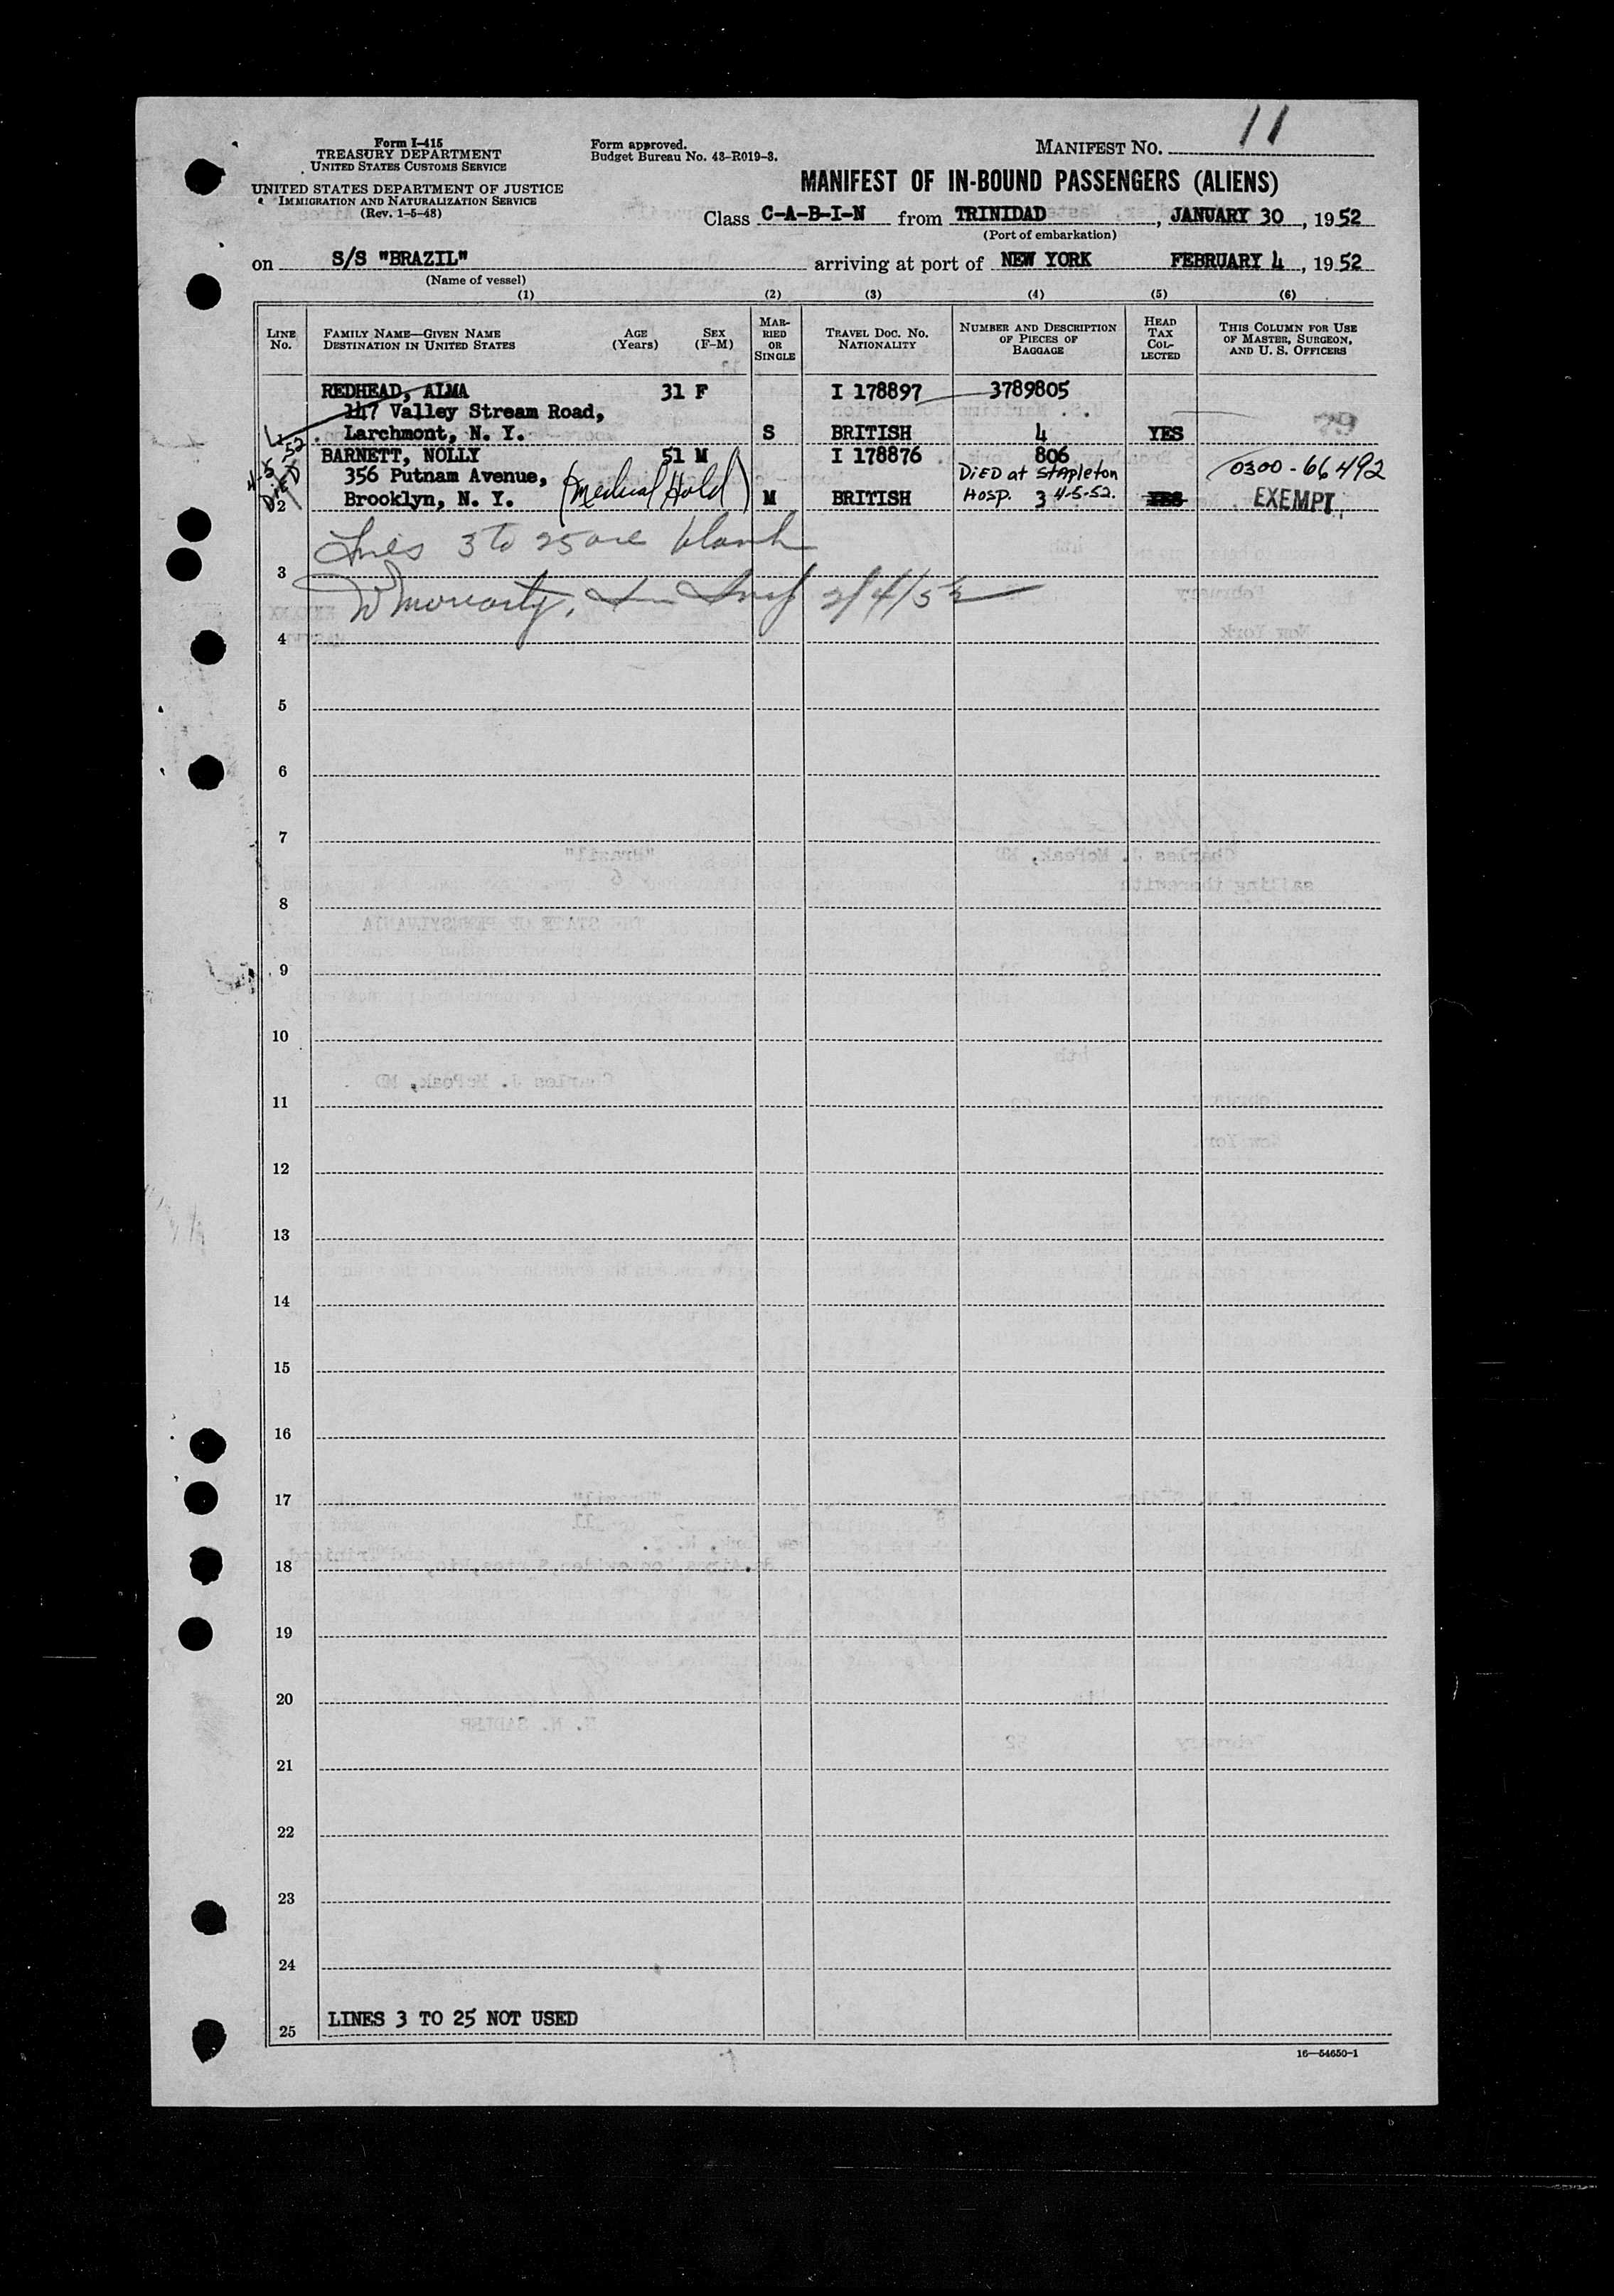 11
Form I-415
TREASURY DEPARTMENT
UNITED STATES CUSTOMS SERVICE
UNITED STATES DEPARTMENT OF JUSTICE
IMMIGRATION AND NATURALIZATION SERVICE
(Rev. 1-5-48)
Form approved.
Budget Bureau No. 43-R019-3.
MANIFEST NO.
MANIFEST OF IN-BOUND PASSENGERS (ALIENS)
Class C-A-B-I-N from TRINIDAD, JANUARY 30, 1952
(Port of embarkation)
on S/S "BRAZIL" arriving at port of NEW YORK FEBRUARY 4, 1952
(Name of vessel)
(1) (2) (3) (4) (5) (6)
LINE NO.
FAMILY NAME—GIVEN NAME
DESTINATION IN UNITED STATES
AGE (Years)
SEX (F-M)
MARRIED OR SINGLE
TRAVEL DOC. NO.
NATIONALITY
NUMBER AND DESCRIPTION OF PIECES OF BAGGAGE
HEAD TAX COLLECTED
THIS COLUMN FOR USE OF MASTER, SURGEON, AND U. S. OFFICERS
REDHEAD, ALMA 31 F I 178897 3789805
147 Valley Stream Road,
Larchmont, N. Y. S BRITISH 4 YES
BARNETT, NOLLY 51 M I 178876 806
356 Putnam Avenue, (medical Hold) DIED at Stapleton 0300-66492
2 Brooklyn, N. Y. M BRITISH Hosp. 3 4-5-52. YES EXEMPT
DIED 4-5-52
Lines 3 to 25 are blank
3
W Moriarty, Im Insp 2/4/52
4
5
6
7
8
9
10
11
12
13
14
15
16
17
18
19
20
21
22
23
24
25 LINES 3 TO 25 NOT USED
16—54650-1